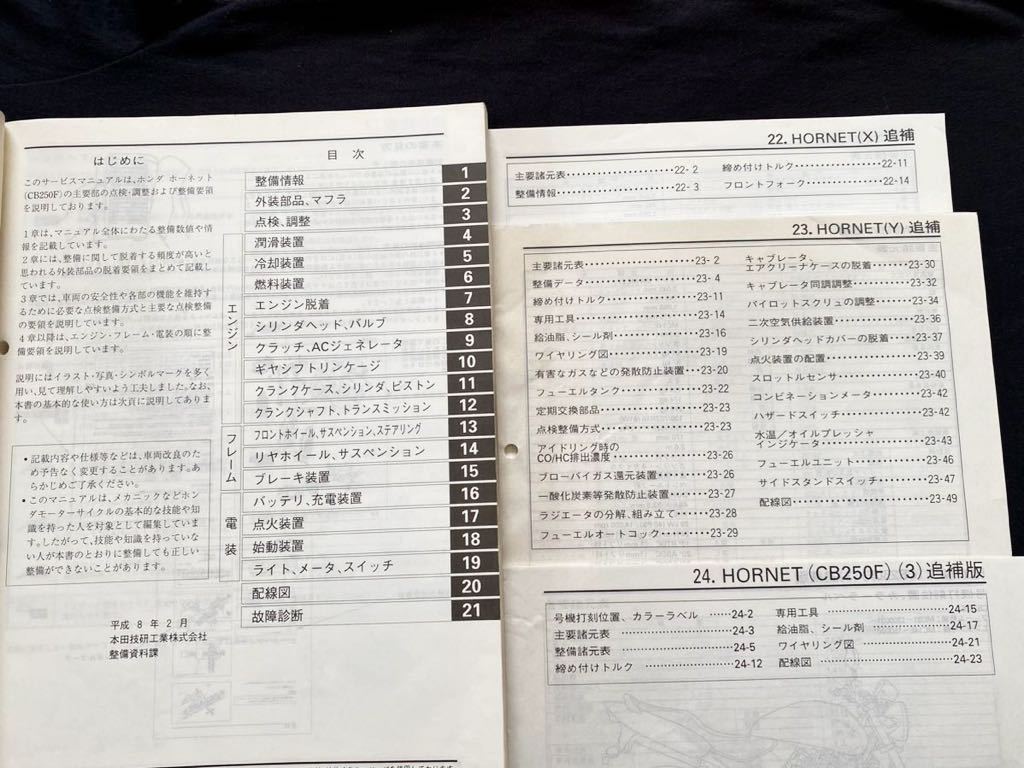 はじめに
このサービスマニュアルは、ホンダ ホーネット
(CB250F)の主要部の点検・調整および整備要領
を説明しております。
1章は、マニュアル全体にわたる整備数値や情
報を記載しています。
2章には、整備に関して脱着する頻度が高いと
思われる外装部品の脱着要領をまとめて記載し
ています。
3章では、車両の安全性や各部の機能を維持す
るために必要な点検整備方式と主要な点検整備
の要領を説明しています。
4章以降は、エンジン・フレーム・電装の順に整
備要領を説明しています。
説明にはイラスト・写真・シンボルマークを多く
用い、見て理解しやすいよう工夫しました。なお、
本書の基本的な使い方は次頁に説明してありま
す。
・記載内容や仕様等などは、車両改良のた
め予告なく変更することがあります。あ
らかじめご了承ください。
・このマニュアルは、メカニックなどホン
ダモーターサイクルの基本的な技能や知
識を持った人を対象として編集していま
す。したがって、技能や知識を持っていな
い人が本書のとおりに整備しても正しい
整備ができないことがあります。
平成8年2月
本田技研工業株式会社
整備資料課
目 次
整備情報 1
外装部品、マフラ 2
点検、調整 3
エンジン
潤滑装置 4
冷却装置 5
燃料装置 6
エンジン脱着 7
シリンダヘッド、バルブ 8
クラッチ、ACジェネレータ 9
ギヤシフトリンケージ 10
クランクケース、シリンダ、ピストン 11
クランクシャフト、トランスミッション 12
フレーム
フロントホイール、サスペンション、ステアリング 13
リヤホイール、サスペンション 14
ブレーキ装置 15
電装
バッテリ、充電装置 16
点火装置 17
始動装置 18
ライト、メータ、スイッチ 19
配線図 20
故障診断 21
22. HORNET(X) 追補
主要諸元表 22- 2
整備情報 22- 3
締め付けトルク 22-11
フロントフォーク 22-14
23. HORNET(Y) 追補
主要諸元表 23- 2
整備データ 23- 4
締め付けトルク 23-11
専用工具 23-14
給油脂、シール剤 23-16
ワイヤリング図 23-19
有害なガスなどの発散防止装置 23-20
フューエルタンク 23-22
定期交換部品 23-23
点検整備方式 23-23
アイドリング時の
CO/HC排出濃度 23-26
ブローバイガス還元装置 23-26
一酸化炭素等発散防止装置 23-27
ラジエータの分解、組み立て 23-28
フューエルオートコック 23-29
キャブレータ、
エアクリーナケースの脱着 23-30
キャブレータ同調調整 23-32
パイロットスクリュの調整 23-34
二次空気供給装置 23-36
シリンダヘッドカバーの脱着 23-37
点火装置の配置 23-39
スロットルセンサ 23-40
コンビネーションメータ 23-42
ハザードスイッチ 23-42
水温/オイルプレッシャ
インジケータ 23-43
フューエルユニット 23-46
サイドスタンドスイッチ 23-47
配線図 23-49
24. HORNET (CB250F) (3) 追補版
号機打刻位置、カラーラベル 24-2
主要諸元表 24-3
整備諸元表 24-5
締め付けトルク 24-12
専用工具 24-15
給油脂、シール剤 24-17
ワイヤリング図 24-21
配線図 24-23